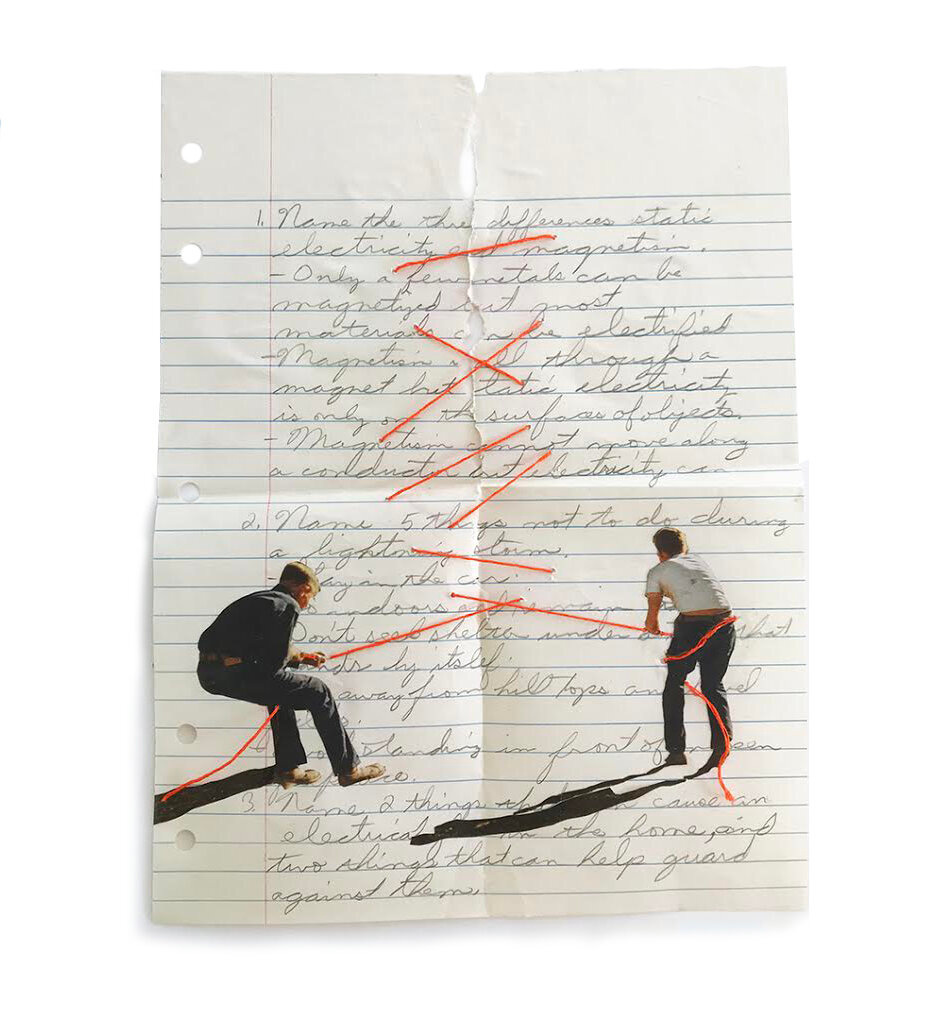 1. Name the thre differences static
electricity and magnetism.
- Only a few metals can be
magnetized but most
materials can be electrified
- Magnetism is all through a
magnet but static electricity
is only on the surfaces of objects.
- Magnetism cannot move along
a conductor but electricity can
2. Name 5 things not to do during
a lightning storm.
in the car.
doors
Don't seek shelter under a that
by itself.
away from hill tops and
standing in front of

3. Name 2 things that can cause an
electrical in the home, and
two things that can help guard
against them.